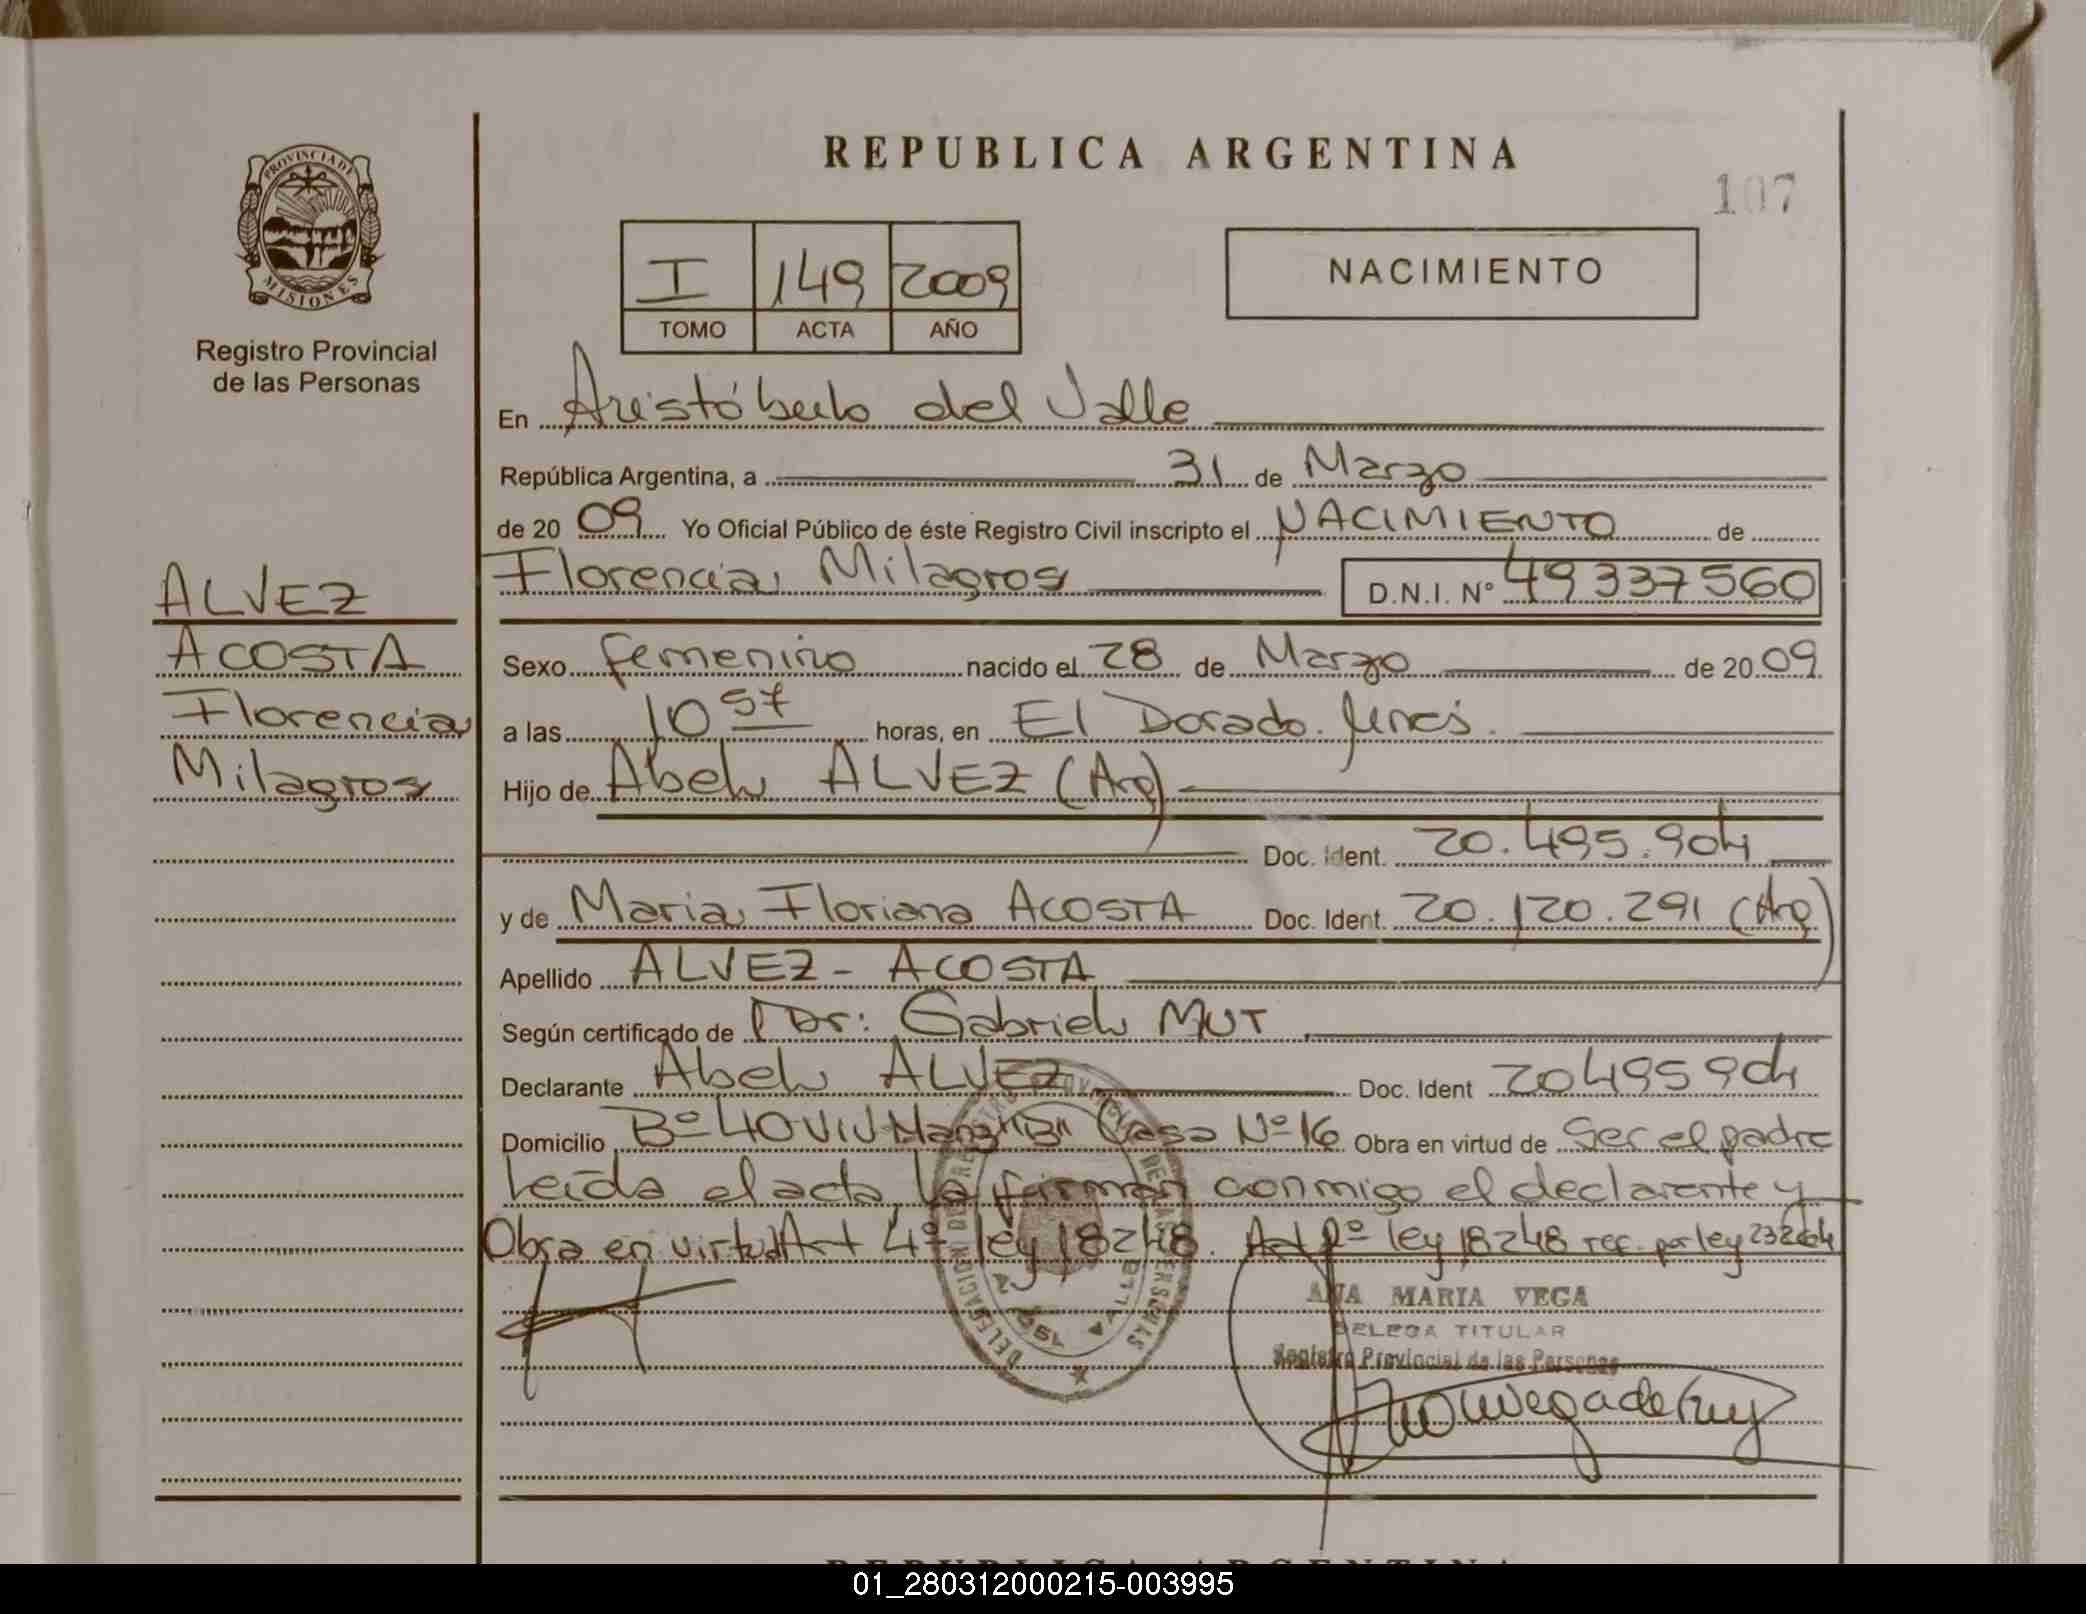 REPUBLICA ARGENTINA
107
PROVINCIA DE
MISIONES
Registro Provincial
de las Personas
I 149 2009
TOMO ACTA AÑO
NACIMIENTO
En Aristóbulo del Valle
República Argentina, a 31 de Marzo
de 20 09 Yo Oficial Público de éste Registro Civil inscripto el NACIMIENTO de
Florencia Milagros D.N.I. Nº 49337560
ALVEZ
ACOSTA
Florencia
Milagros
Sexo femenino nacido el 28 de Marzo de 20 09
a las 10 57 horas, en El Dorado.
Hijo de Abel ALVEZ (Arg)
Doc. Ident. 20.495.904
y de Maria Floriana ACOSTA Doc. Ident. 20.120.291 (Arg)
Apellido ALVEZ - ACOSTA
Según certificado de Dr: Gabriel MUT
Declarante Abel ALVEZ Doc. Ident 20495904
Domicilio Bº 40 VIV Casa Nº 16 Obra en virtud de ser el padre
Leída el acta, la firman conmigo el declarante y
Obra en virtud Art 4º ley 18248. Art ley 18248 por ley
ANA MARIA VEGA
DELEGA TITULAR
Registro Provincial de las Personas
REPUBLICA ARGENTINA
01_280312000215-003995